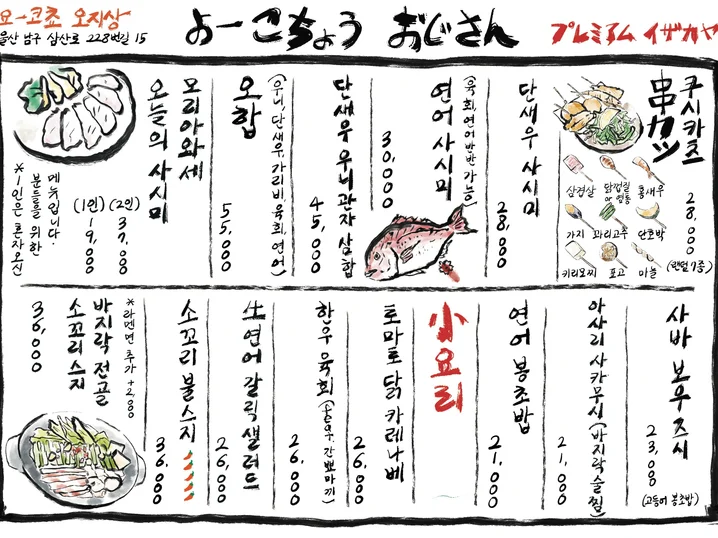 요-코쵸 오지상
울산 남구 삼산로 228번길 15
よーこちょう おじさん
プレミアム イザカヤ
쿠시카츠
串カツ
28,000
(랜덤 7종)
삼겹살
닭껍질 or 염통
홍새우
가지
꽈리고추
단호박
키리모찌
표고
마늘
단새우 사시미
28,000
연어 사시미
(육회, 연어 반반 가능)
30,000
단새우 우니 관자 삼합
45,000
오합
(우니, 단새우, 가리비, 육회, 연어)
55,000
모리아와세
오늘의 사시미
(2인) 37,000
(1인) 19,000
*1인은 혼자 오신
분들을 위한
메뉴입니다.
사바 보우즈시
23,000
(고등어 봉초밥)
아사리 사카무시 (바지락 술찜)
21,000
연어 봉초밥
21,000
小요리
토마토 닭 카레나베
26,000
한우 육회
26,000
生연어 갈릭 샐러드
26,000
소꼬리 불스지
36,000
*라멘면 추가 +200
바지락 전골
소꼬리 스지
36,000